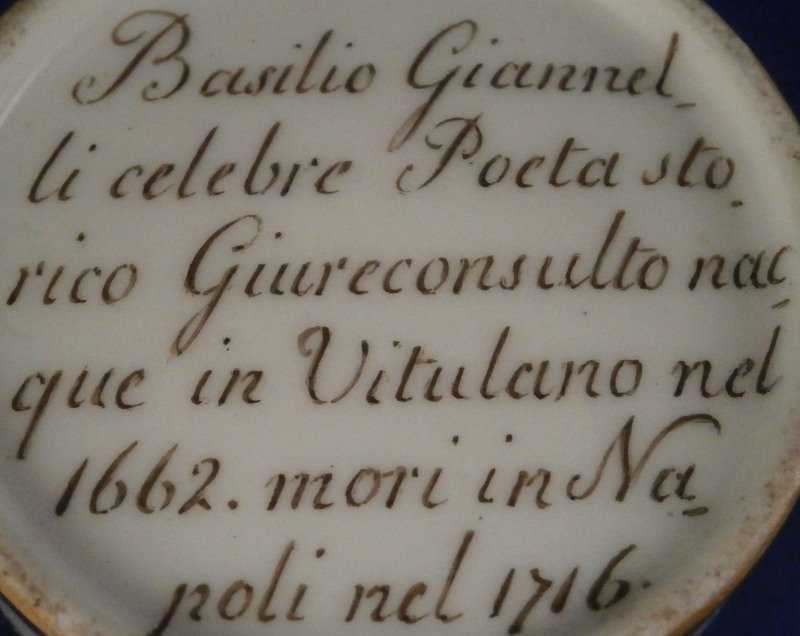 Basilio Giannel_
li celebre Poeta sto_
rico Giureconsulto nac_
que in Vitulano nel
1662. mori in Na_
poli nel 1716.